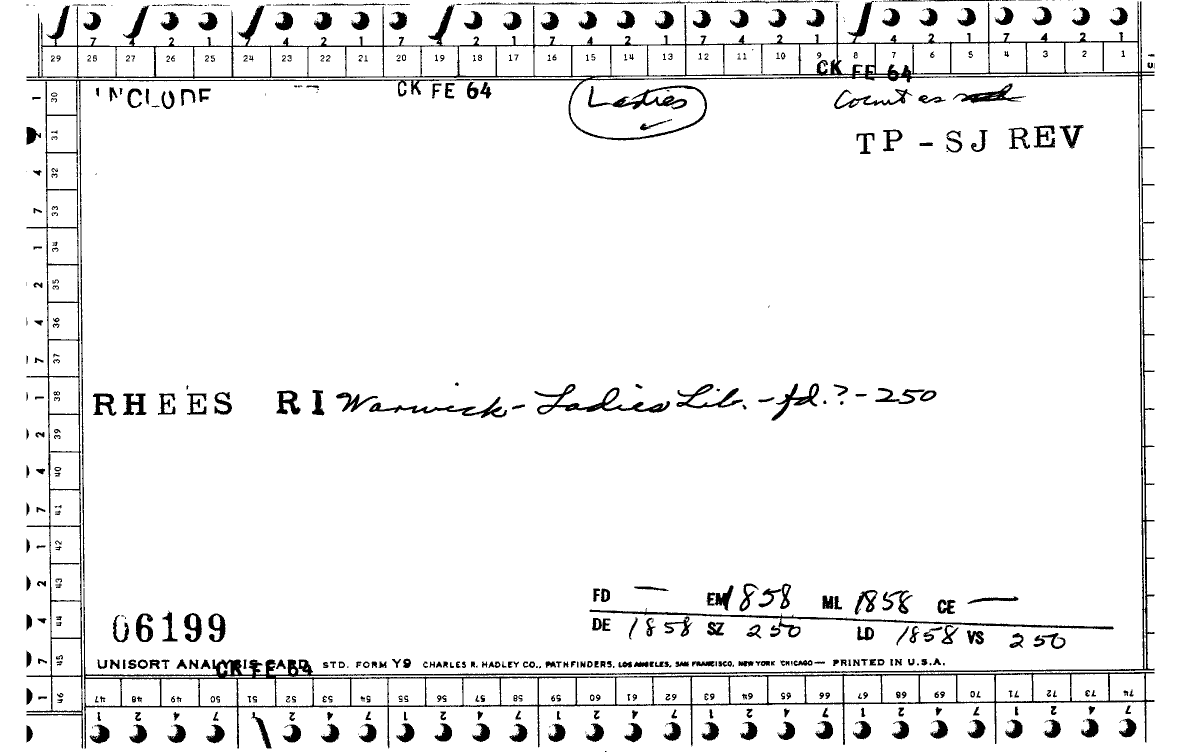 7 4 2 1 7 4 2 1 7 4 2 1 7 4 2 1 7 4 2 1 7 4 2 1 7 4 2 1
29 28 27 26 25 24 23 22 21 20 19 18 17 16 15 14 13 12 11 10 9 8 7 6 5 4 3 2 1
CK FE 64
INCLUDE CK FE 64 Ladies Count as
TP-SJ REV
1 30
2 31
4 32
7 33
1 34
2 35
4 36
7 37
1 38
2 39
4 40
7 41
1 42
2 43
4 44
7 45
1 46
RHEES RI Warwick - Ladies Lib. - fd.? - 250
FD — EM 1858 ML 1858 CE —
DE 1858 SZ 250 LD 1858 VS 250
06199
UNISORT ANALYSIS CARD STD. FORM Y9 CHARLES R. HADLEY CO., PATHFINDERS, LOS ANGELES, SAN FRANCISCO, NEW YORK CHICAGO — PRINTED IN U.S.A.
CK FE 64
47 48 49 50 51 52 53 54 55 56 57 58 59 60 61 62 63 64 65 66 67 68 69 70 71 72 73 74
1 2 4 7 2 4 7 1 2 4 7 1 2 4 7 1 2 4 7 1 2 4 7 1 2 4 7